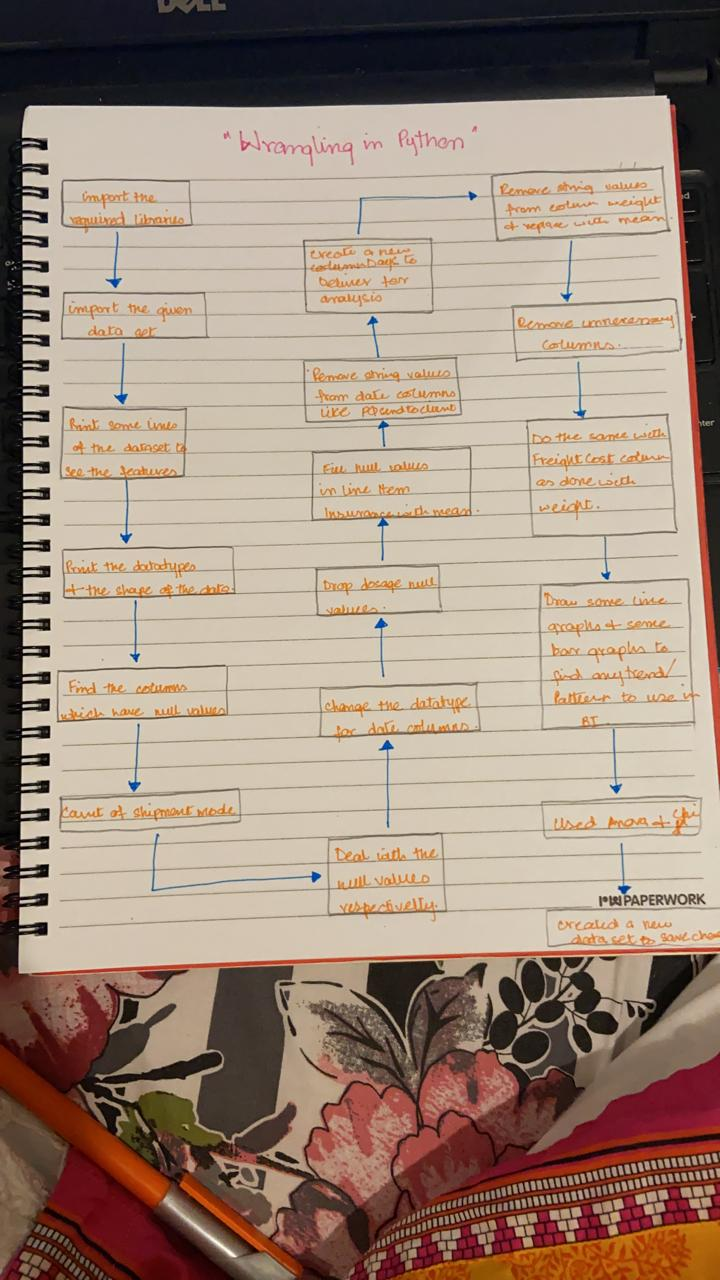 DELL
"Wrangling in Python"
import the
required libraries
import the given
data set
Print some lines
of the dataset to
see the features
Print the datatypes
+ the shape of the data.
Find the columns
which have null values
Count of shipment mode
Deal with the
null values
respectivelly.
change the datatype
for date columns.
Drop dosage null
values.
Fill null values
in Line Item
Insurance with mean.
Remove string values
from date columns
like PQ send to client
create a new
column Days to
Deliver for
analysis
Remove string values
from column weight
+ replace with mean.
Remove unnecessary
columns.
Do the same with
Freight Cost column
as done with
weight.
Draw some line
graphs + some
bar graphs to
find any trend/
Pattern to use in
BI.
Used Anova + Chi
PAPERWORK
created a new
data set to save